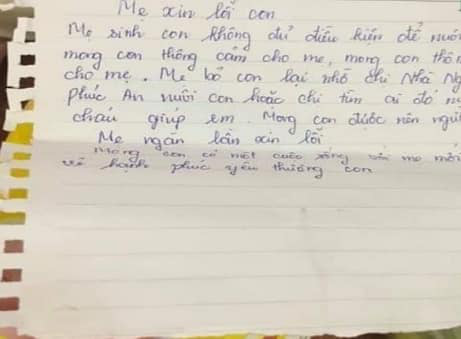 Mẹ xin lỗi con
Mẹ sinh con không đủ điều kiện để nuôi
mong con thông cảm cho mẹ, mong con thôn
cho mẹ. Mẹ bỏ con lại nhờ chị Nhà Ng
phúc An nuôi con hoặc chị tìm ai đó nu
cháu giúp em. Mong con được nên ngườ
Mẹ ngàn lần xin lỗi
Mong con có một cuộc sống với mẹ mới
về hành phúc yêu thương con